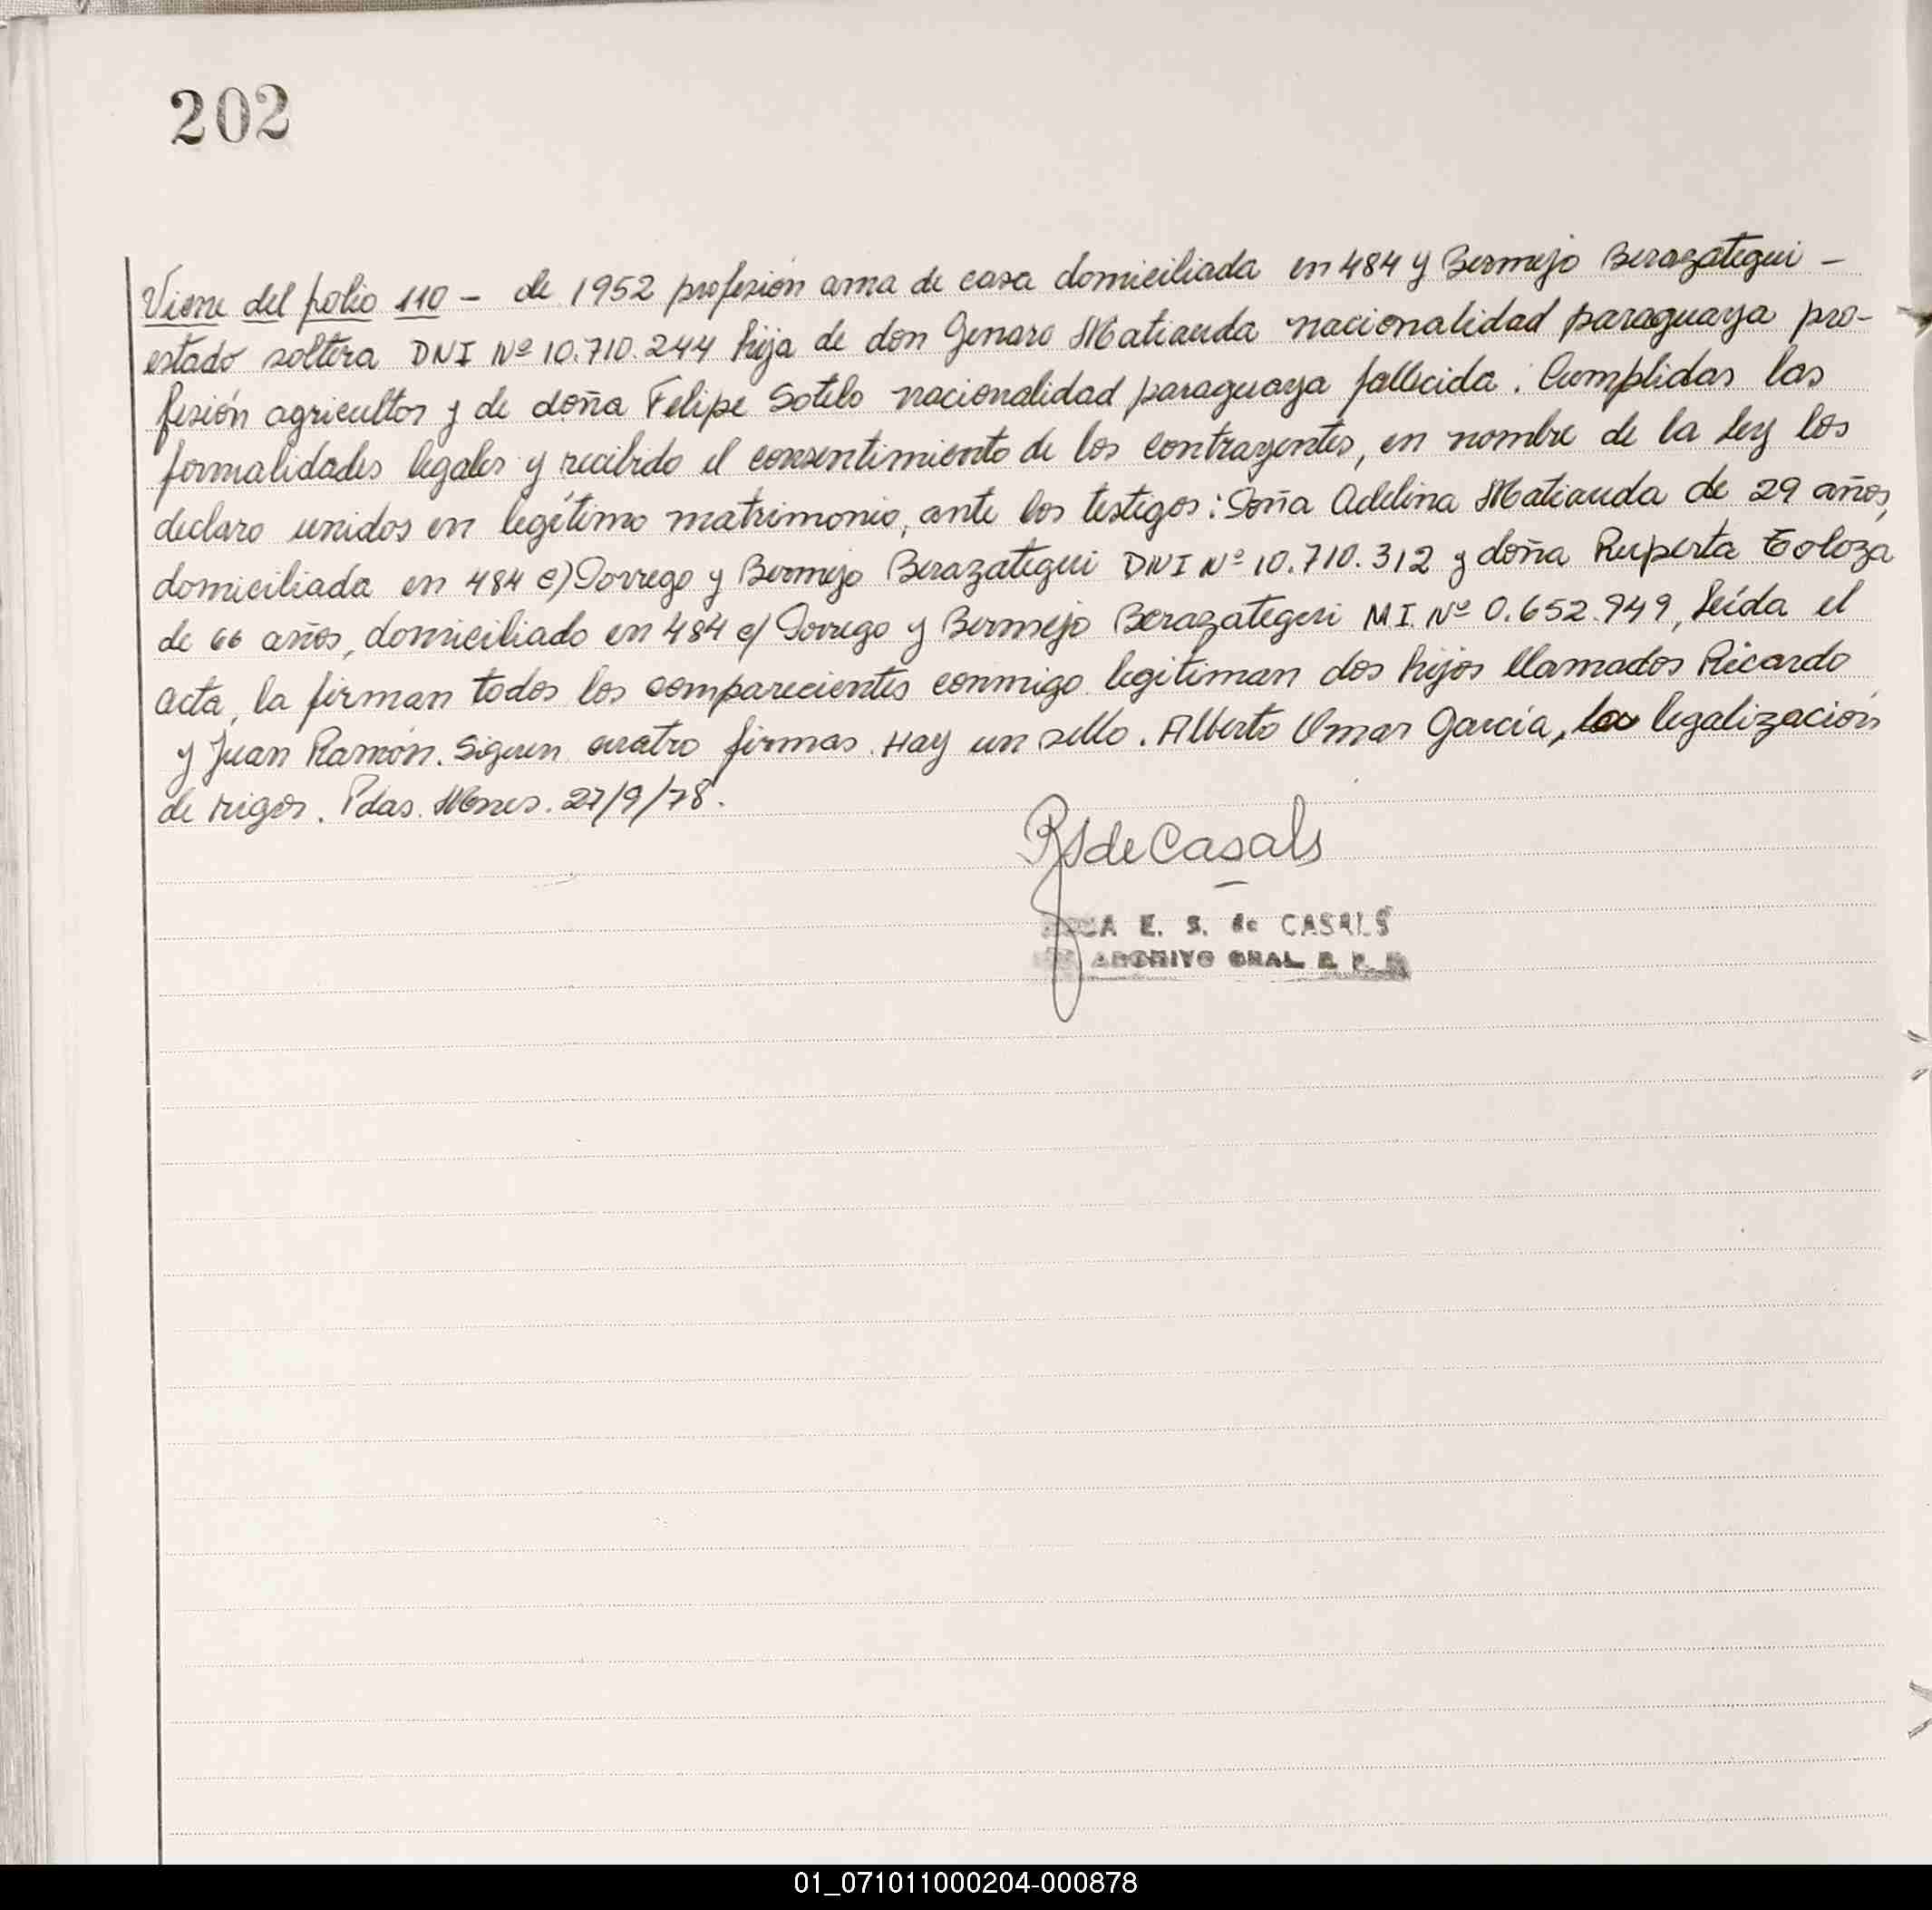 202
Viene del folio 110 - de 1952 profesión ama de casa domiciliada en 484 y Bermejo Berazategui -
estado soltera DNI Nº 10.710.244 hija de don Genaro Matiauda nacionalidad paraguaya pro-
fesión agricultor y de doña Felipe Sotelo nacionalidad paraguaya fallecida. Cumplidas las
formalidades legales y recibido el consentimiento de los contrayentes, en nombre de la Ley los
declaro unidos en legítimo matrimonio, ante los testigos: Doña Adelina Matiauda de 29 años,
domiciliada en 484 e) Dorrego y Bermejo Berazategui DNI Nº 10.710.312 y doña Ruperta Toloza
de 66 años, domiciliado en 484 e/ Dorrego y Bermejo Berazategui M I. Nº 0.652.949, Leída el
acta, la firman todos los comparecientes conmigo legitiman dos hijos llamados Ricardo
y Juan Ramón. Siguen cuatro firmas. Hay un sello. Alberto Omar García, la legalización
de rigor. Pdas. Mones. 27/9/78.
RSdeCasals
E. S. de CASALS
ARCHIVO GRAL. R. P.
01_071011000204-000878